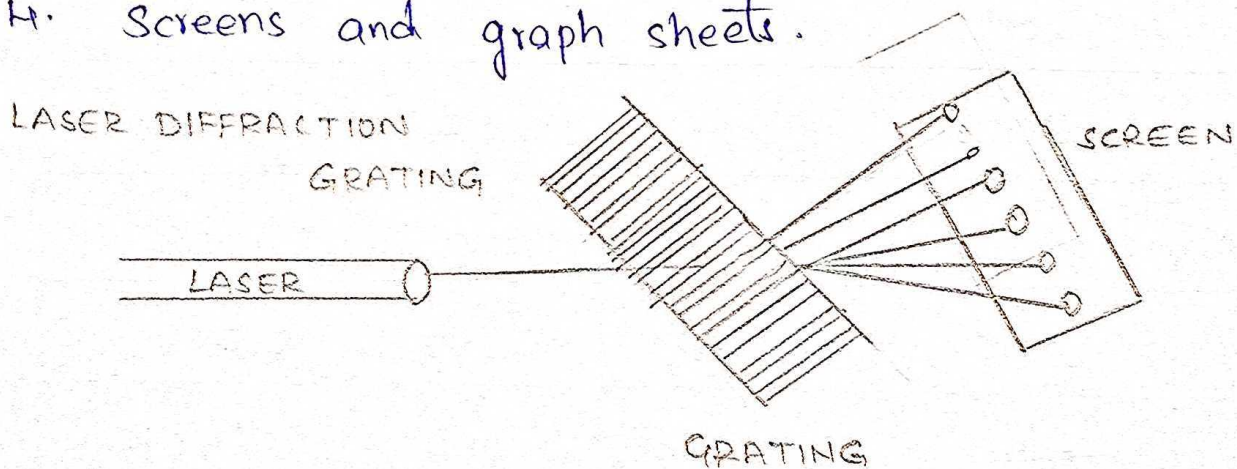 4. Screens and graph sheets.
LASER DIFFRACTION
GRATING
SCREEN
LASER
GRATING